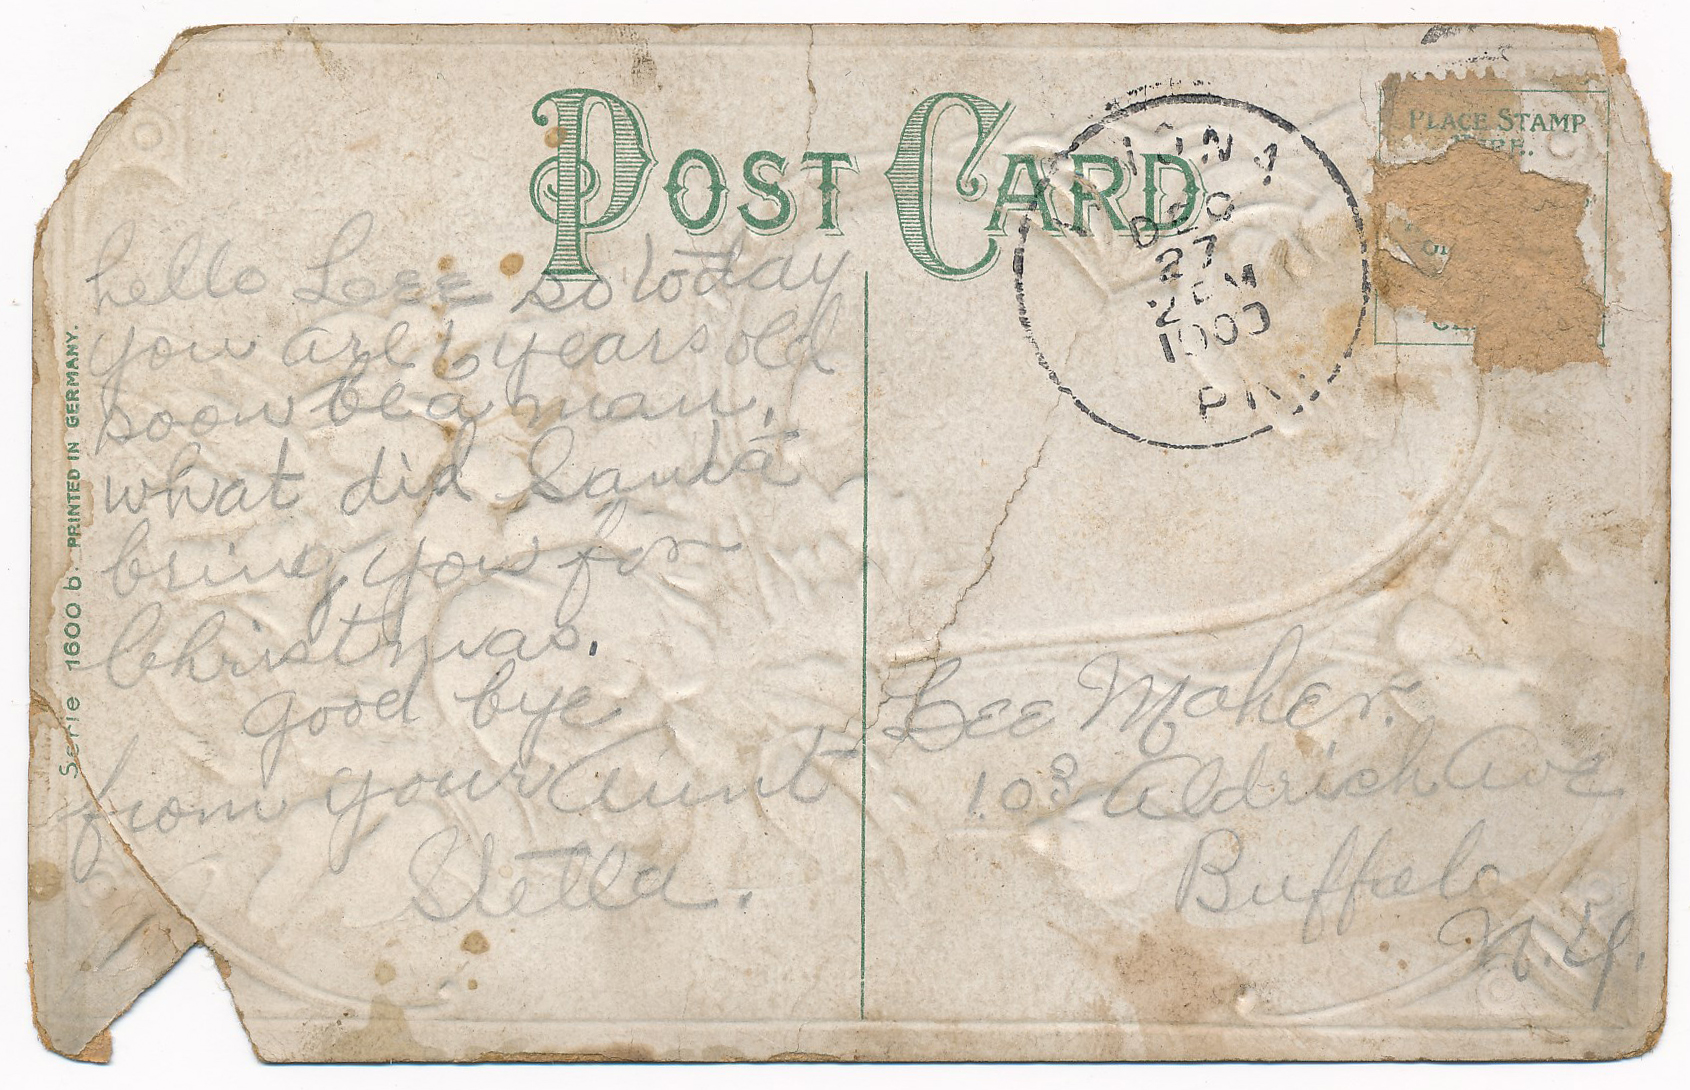 POST CARD
PLACE STAMP
DEC
27
PM
Serie 1600 b. PRINTED IN GERMANY.
hello Lee so today
you are 6 years old
soon be a man,
what did Santa
bring you for
Christmas.
good bye
from your Aunt
Stella.
Lee Maher.
103 Aldrich Ave
Buffalo
N.Y.